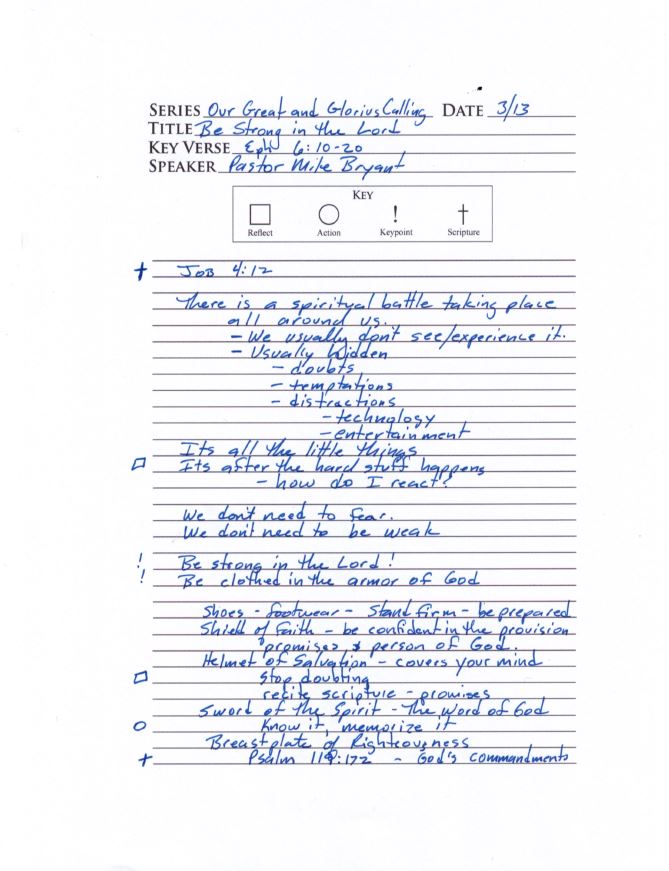 SERIES Our Great and Glorius Calling DATE 3/13
TITLE Be Strong in the Lord
KEY VERSE Eph 6:10-20
SPEAKER Pastor Mike Bryant
KEY
□ ○ ! †
Reflect Action Keypoint Scripture
† JOB 4:12
There is a spirityal battle taking place
all around us.
- We usually don't see/experience it.
- Usually hidden
- doubts
- temptations
- distractions
- technology
- entertainment
Its all the little things
□ Its after the hard stuff happens
- how do I react?
We don't need to fear.
We don't need to be weak
! Be strong in the Lord!
! Be clothed in the armor of God
Shoes - footwear - Stand firm - be prepared
Shield of Faith - be confident in the provision
promises, & person of God.
Helmet of Salvation - covers your mind
□ Stop doubting
recite scripture - promises
Sword of the Spirit - The Word of God
○ Know it, memorize it
Breastplate of Righteousness
† Psalm 119:172 - God's commandments